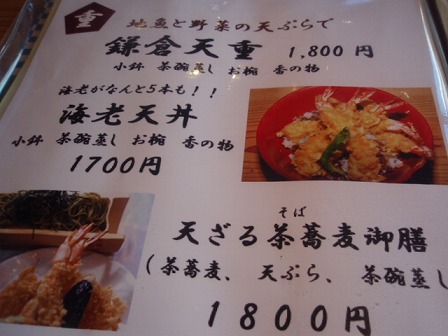 重
地魚と野菜の天ぷらで
鎌倉天重 1,800 円
小鉢 茶碗蒸し お椀 香の物
海老がなんと5本も!!
海老天丼
小鉢 茶碗蒸し お椀 香の物
1700円
そば
天ざる茶蕎麦御膳
(茶蕎麦、 天ぷら、 茶碗蒸し
1800円